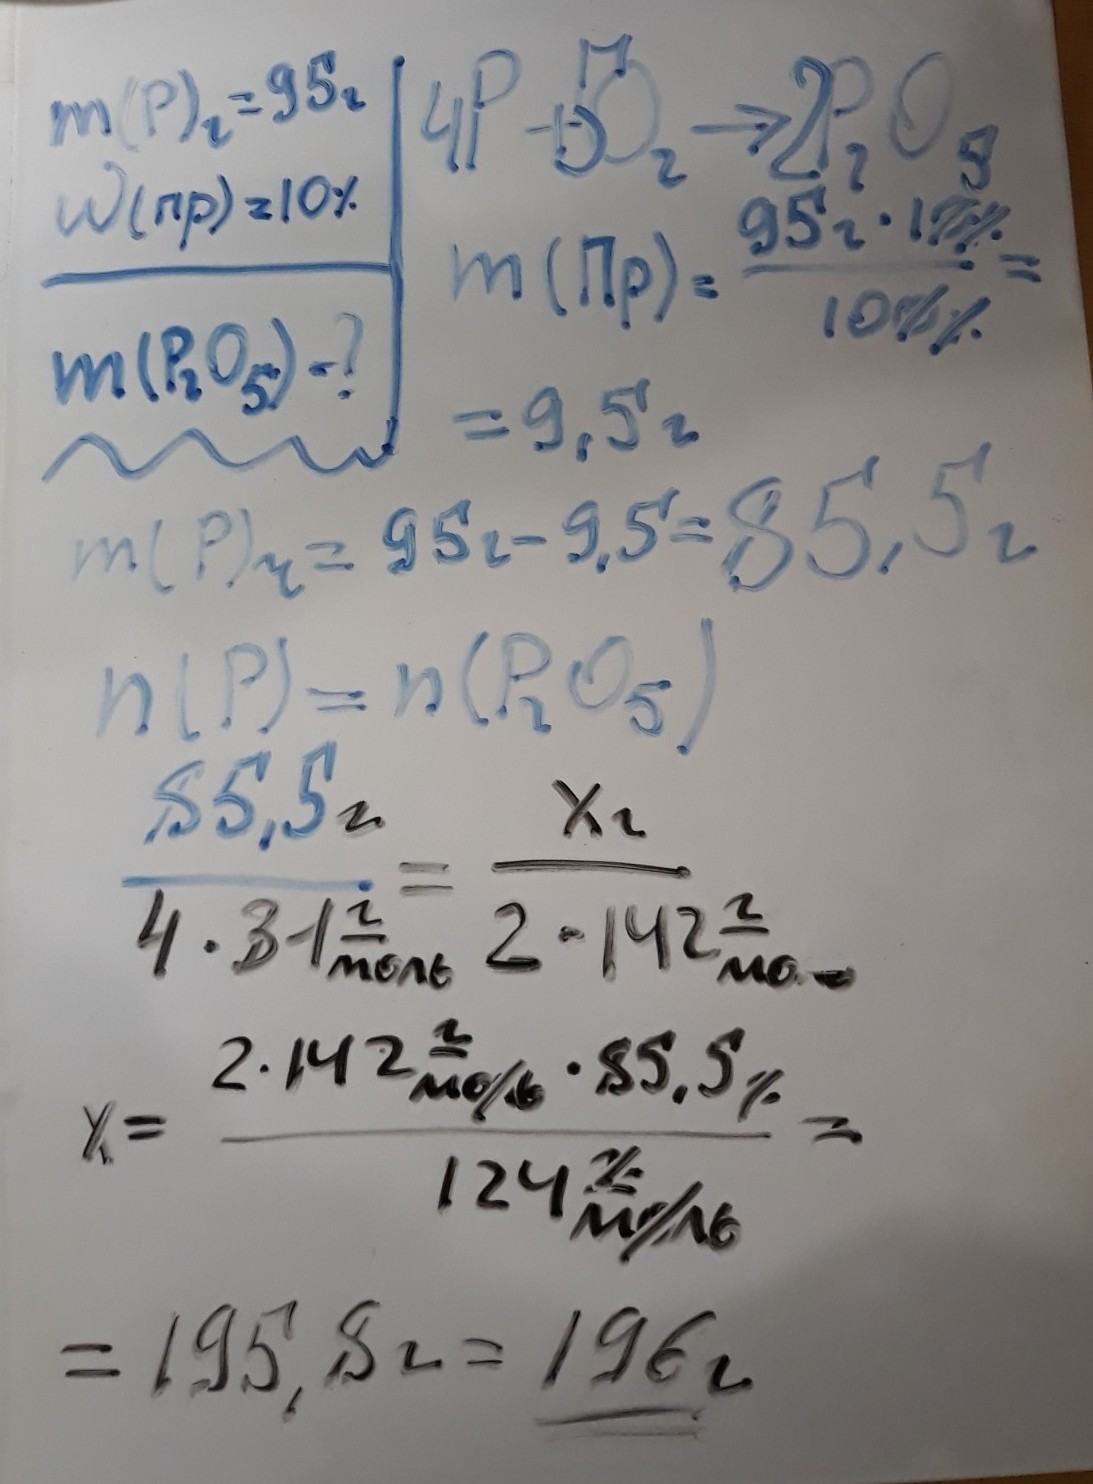 m(P)г=95г
W(пр)=10%
m(P₂O₅)-?
4P + 5O₂ → 2P₂O₅
m(Пр)= 95г·10% / 100% =
=9,5г
m(P)ч= 95г-9,5=85,5г
n(P)=n(P₂O₅)
85,5г / 4·31 г/моль = Xг / 2·142 г/мо
X= 2·142 г/моль·85,5г / 124 г/моль =
=195,8г=196г